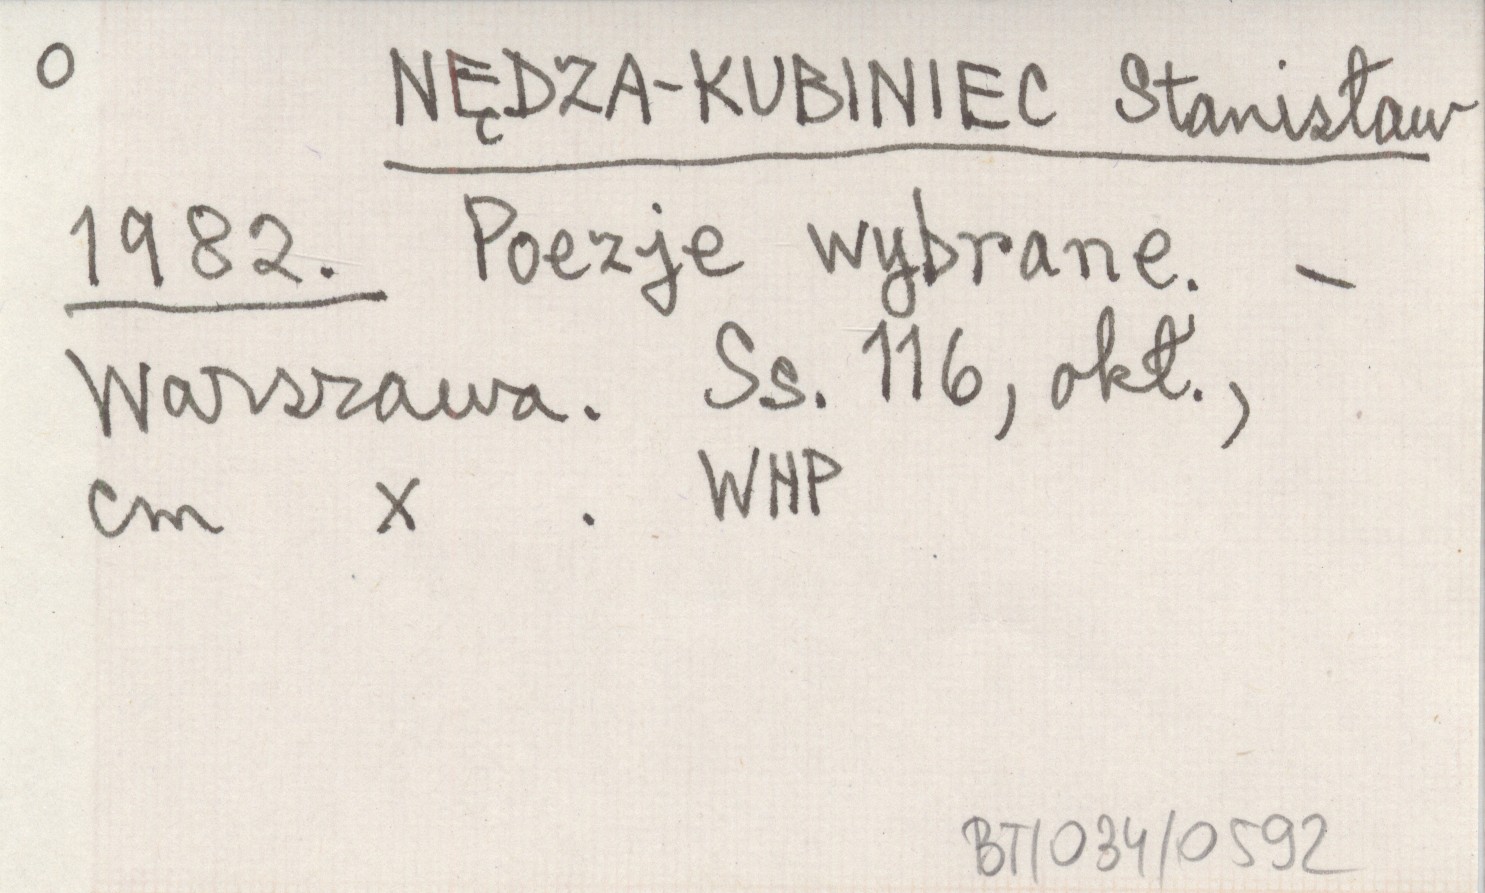 O NĘDZA-KUBINIEC Stanisław
1982. Poezje wybrane. -
Warszawa. Ss. 116, okł.,
cm x . WHP
BT/034/0592